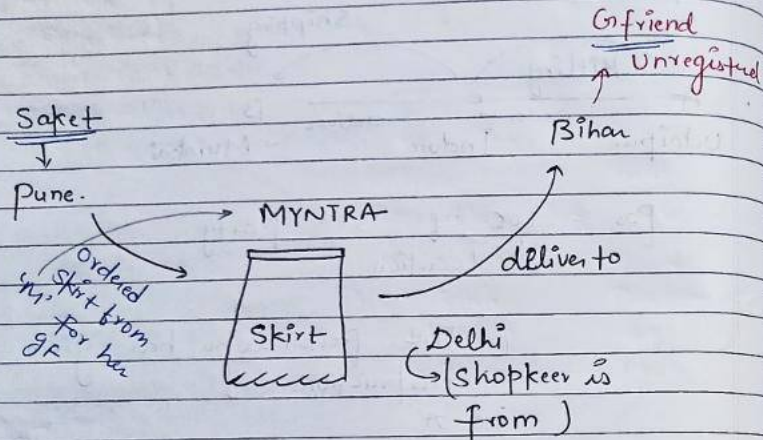 Gfriend
Unregistred
Saket
Bihar
Pune.
MYNTRA
Ordered
'M' Skirt from
for her
gf
deliver to
Skirt
Delhi
(Shopkeer is
from)